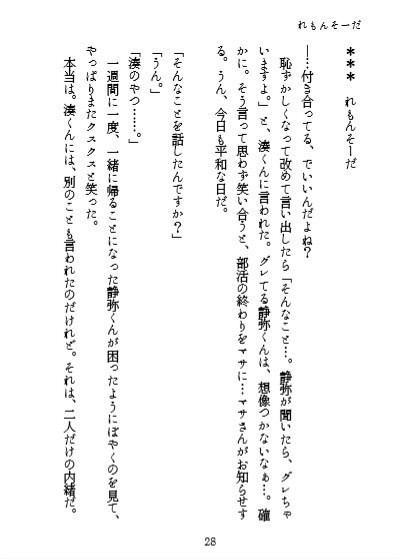 れもんそーだ
＊＊＊　れもんそーだ
――…付き合ってる、でいいんだよね？
恥ずかしくなって改めて言い出したら「そんなこと…。静弥が聞いたら、グレちゃ
いますよ。」と、湊くんに言われた。グレてる静弥くんは、想像つかないなぁ…。確
かに。そう言って思わず笑い合うと、部活の終わりをマサに…マサさんがお知らせす
る。うん、今日も平和な日だ。
「そんなことを話したんですか？」
「うん。」
「湊のやつ……。」
一週間に一度、一緒に帰ることになった静弥くんが困ったようにぼやくのを見て、
やっぱりまたクスクスと笑った。
本当は。湊くんには、別のことも言われたのだけれど。それは、二人だけの内緒だ。
28